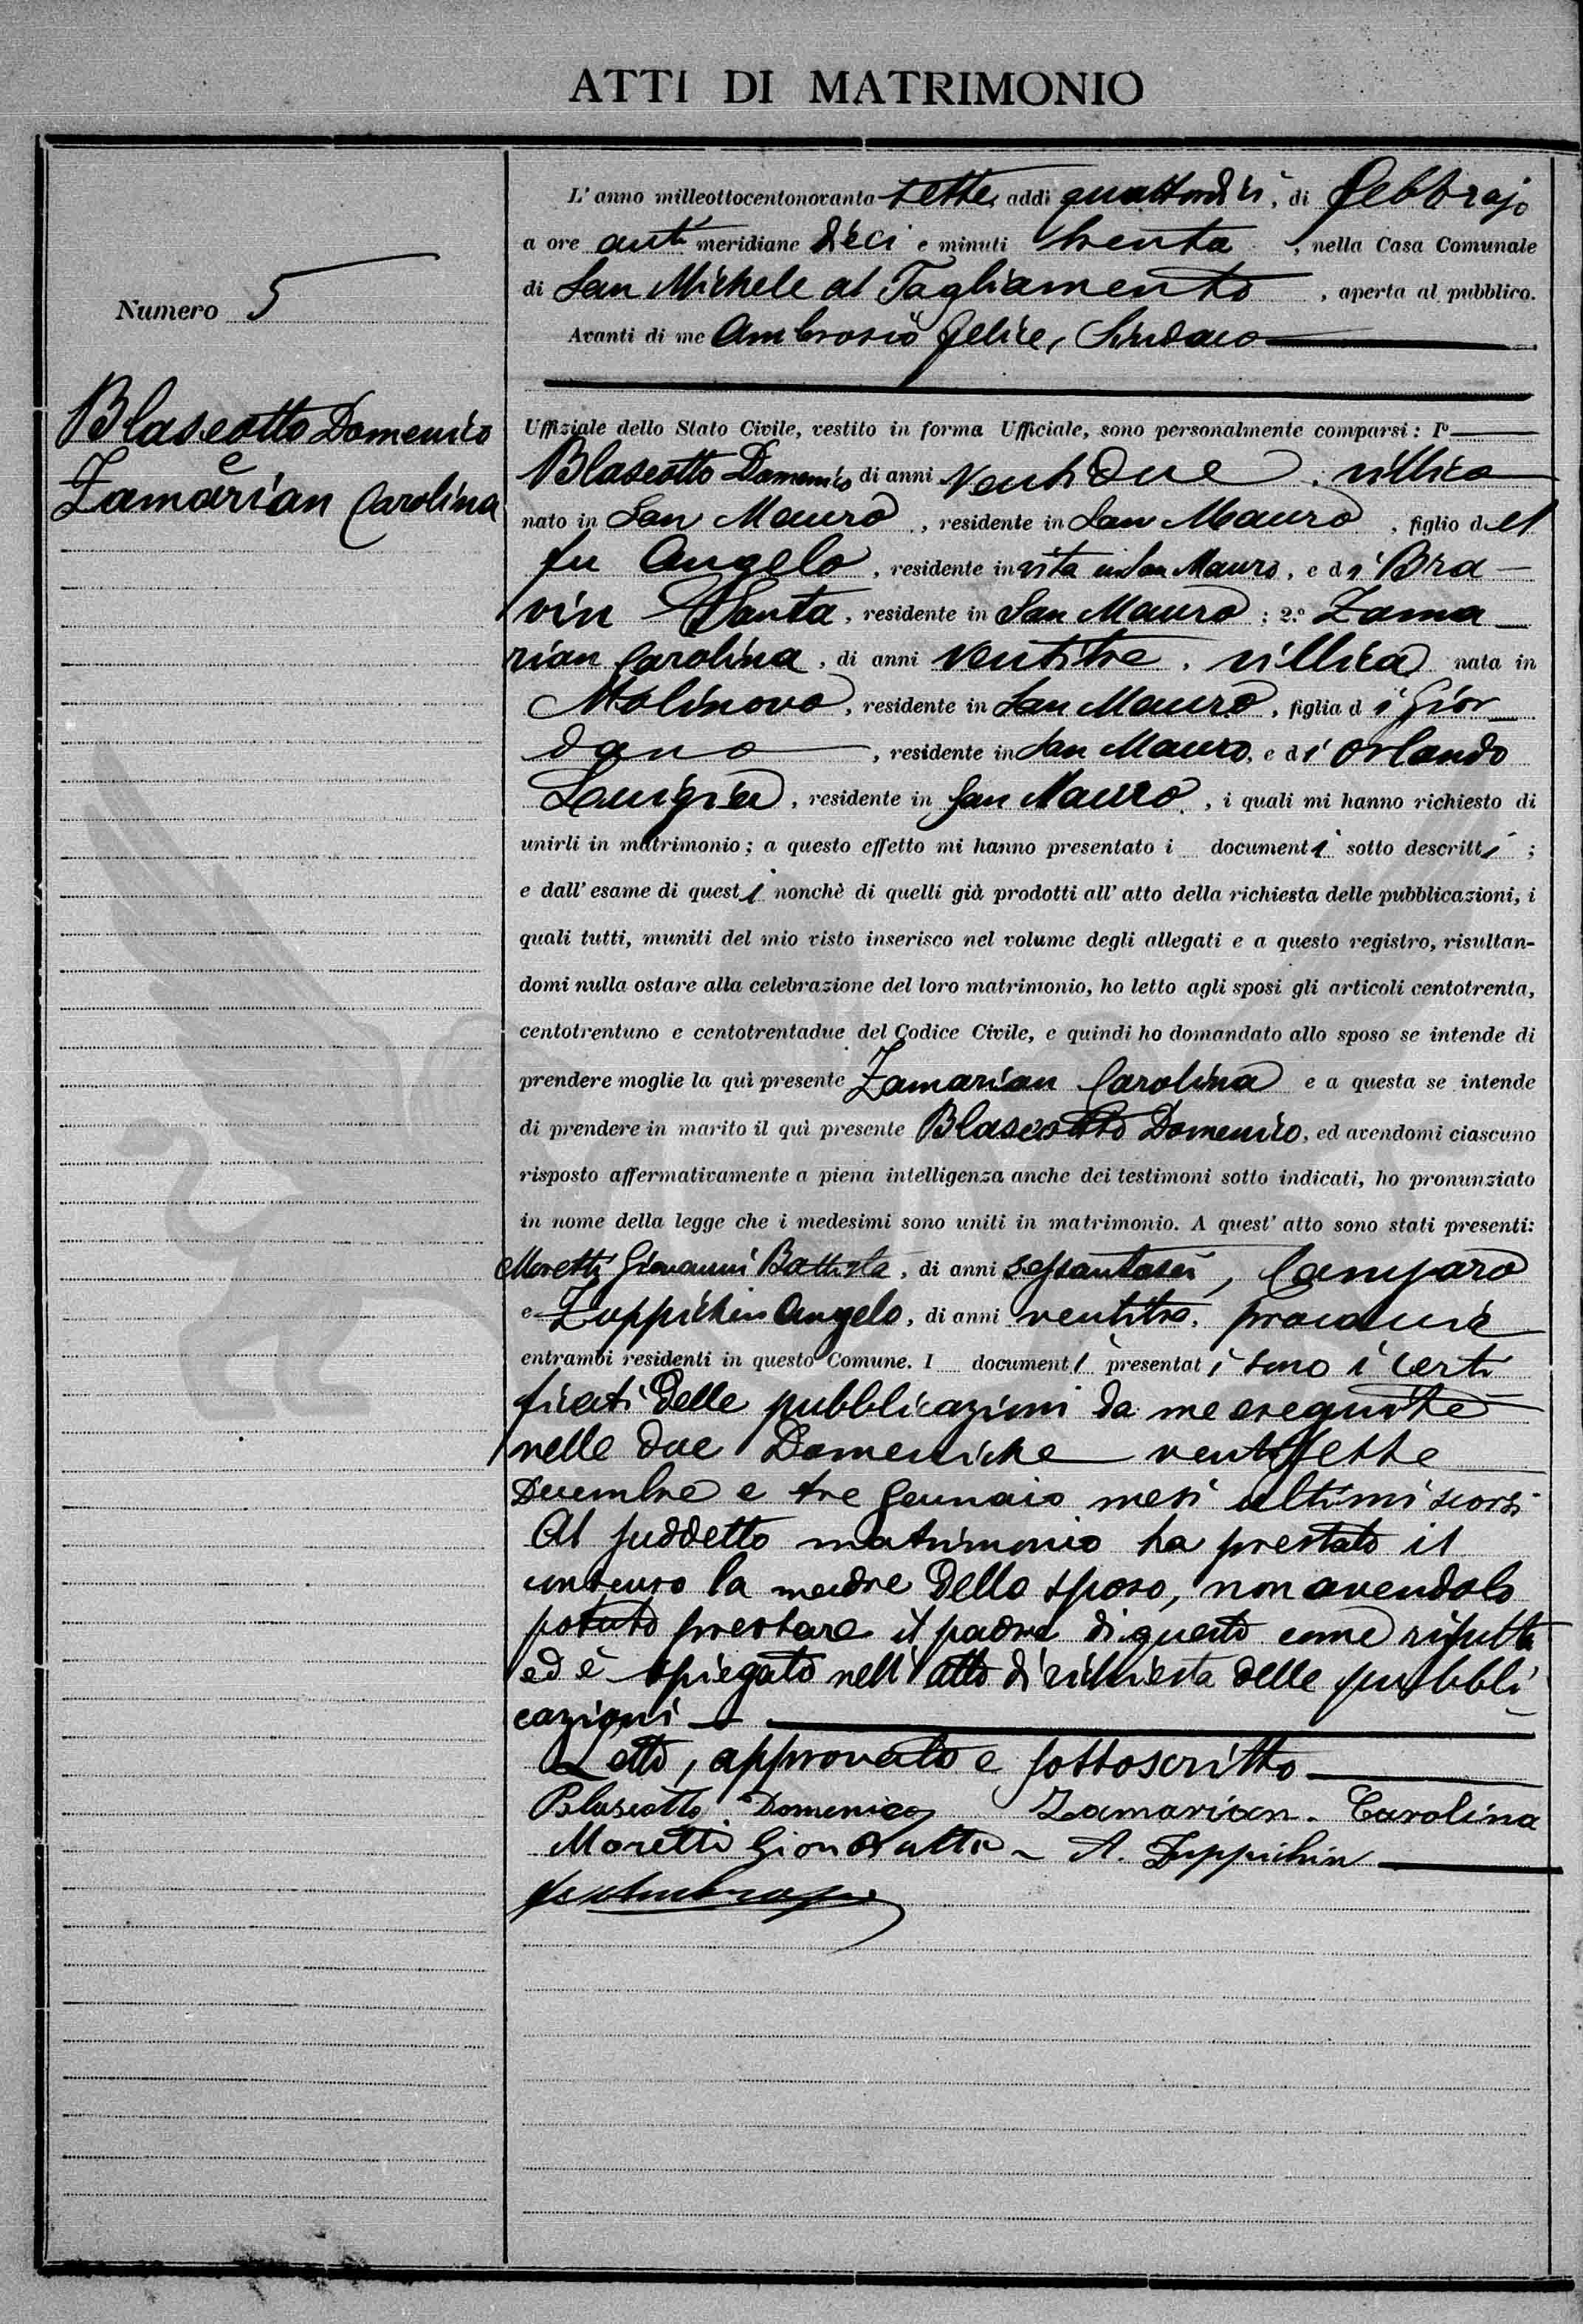 ATTI DI MATRIMONIO
Numero 5
Blaseotto Domenico
e
Zamarian Carolina
L' anno milleottocentonovantasette, addi quattordici, di Febbrajo
a ore anti meridiane dieci e minuti trenta, nella Casa Comunale
di San Michele al Tagliamento, aperta al pubblico.
Avanti di me Ambrosio Felice, Sindaco
Uffiziale dello Stato Civile, vestito in forma Ufficiale, sono personalmente comparsi: 1º
Blaseotto Domenico di anni ventidue, villico
nato in San Mauro, residente in San Mauro, figlio del
fu Angelo, residente in vita in San Mauro, e di Bra-
vin Santa, residente in San Mauro; 2.º Zama-
rian Carolina, di anni ventitre, villica nata in
Malinovo, residente in San Mauro, figlia di Gior
dano, residente in San Mauro, e di Orlando
Luigia, residente in San Mauro, i quali mi hanno richiesto di
unirli in matrimonio; a questo effetto mi hanno presentato i documenti sotto descritti;
e dall' esame di questi nonchè di quelli già prodotti all' atto della richiesta delle pubblicazioni, i
quali tutti, muniti del mio visto inserisco nel volume degli allegati e a questo registro, risultan-
domi nulla ostare alla celebrazione del loro matrimonio, ho letto agli sposi gli articoli centotrenta,
centotrentuno e centotrentadue del Codice Civile, e quindi ho domandato allo sposo se intende di
prendere moglie la quì presente Zamarian Carolina e a questa se intende
di prendere in marito il quì presente Blaseotto Domenico, ed avendomi ciascuno
risposto affermativamente a piena intelligenza anche dei testimoni sotto indicati, ho pronunziato
in nome della legge che i medesimi sono uniti in matrimonio. A quest' atto sono stati presenti:
Moretti Giovanni Battista, di anni sessantasei,
e Zuppichin Angelo, di anni ventitre,
entrambi residenti in questo Comune. I documenti presentati sono i certi
ficati delle pubblicazioni da me eseguite
nelle due Domeniche ventisette
Decembre e tre Gennaio mesi ultimi scorsi
Al suddetto matrimonio ha prestato il
consenso la madre dello sposo, non avendolo
potuto prestare il padre di questo come risulta
ed è spiegato nell' atto di richiesta delle pubbli
cazioni
Letto, approvato e sottoscritto
Blaseotto Domenico Zamarian Carolina
Moretti Gion Batta A. Zuppichin